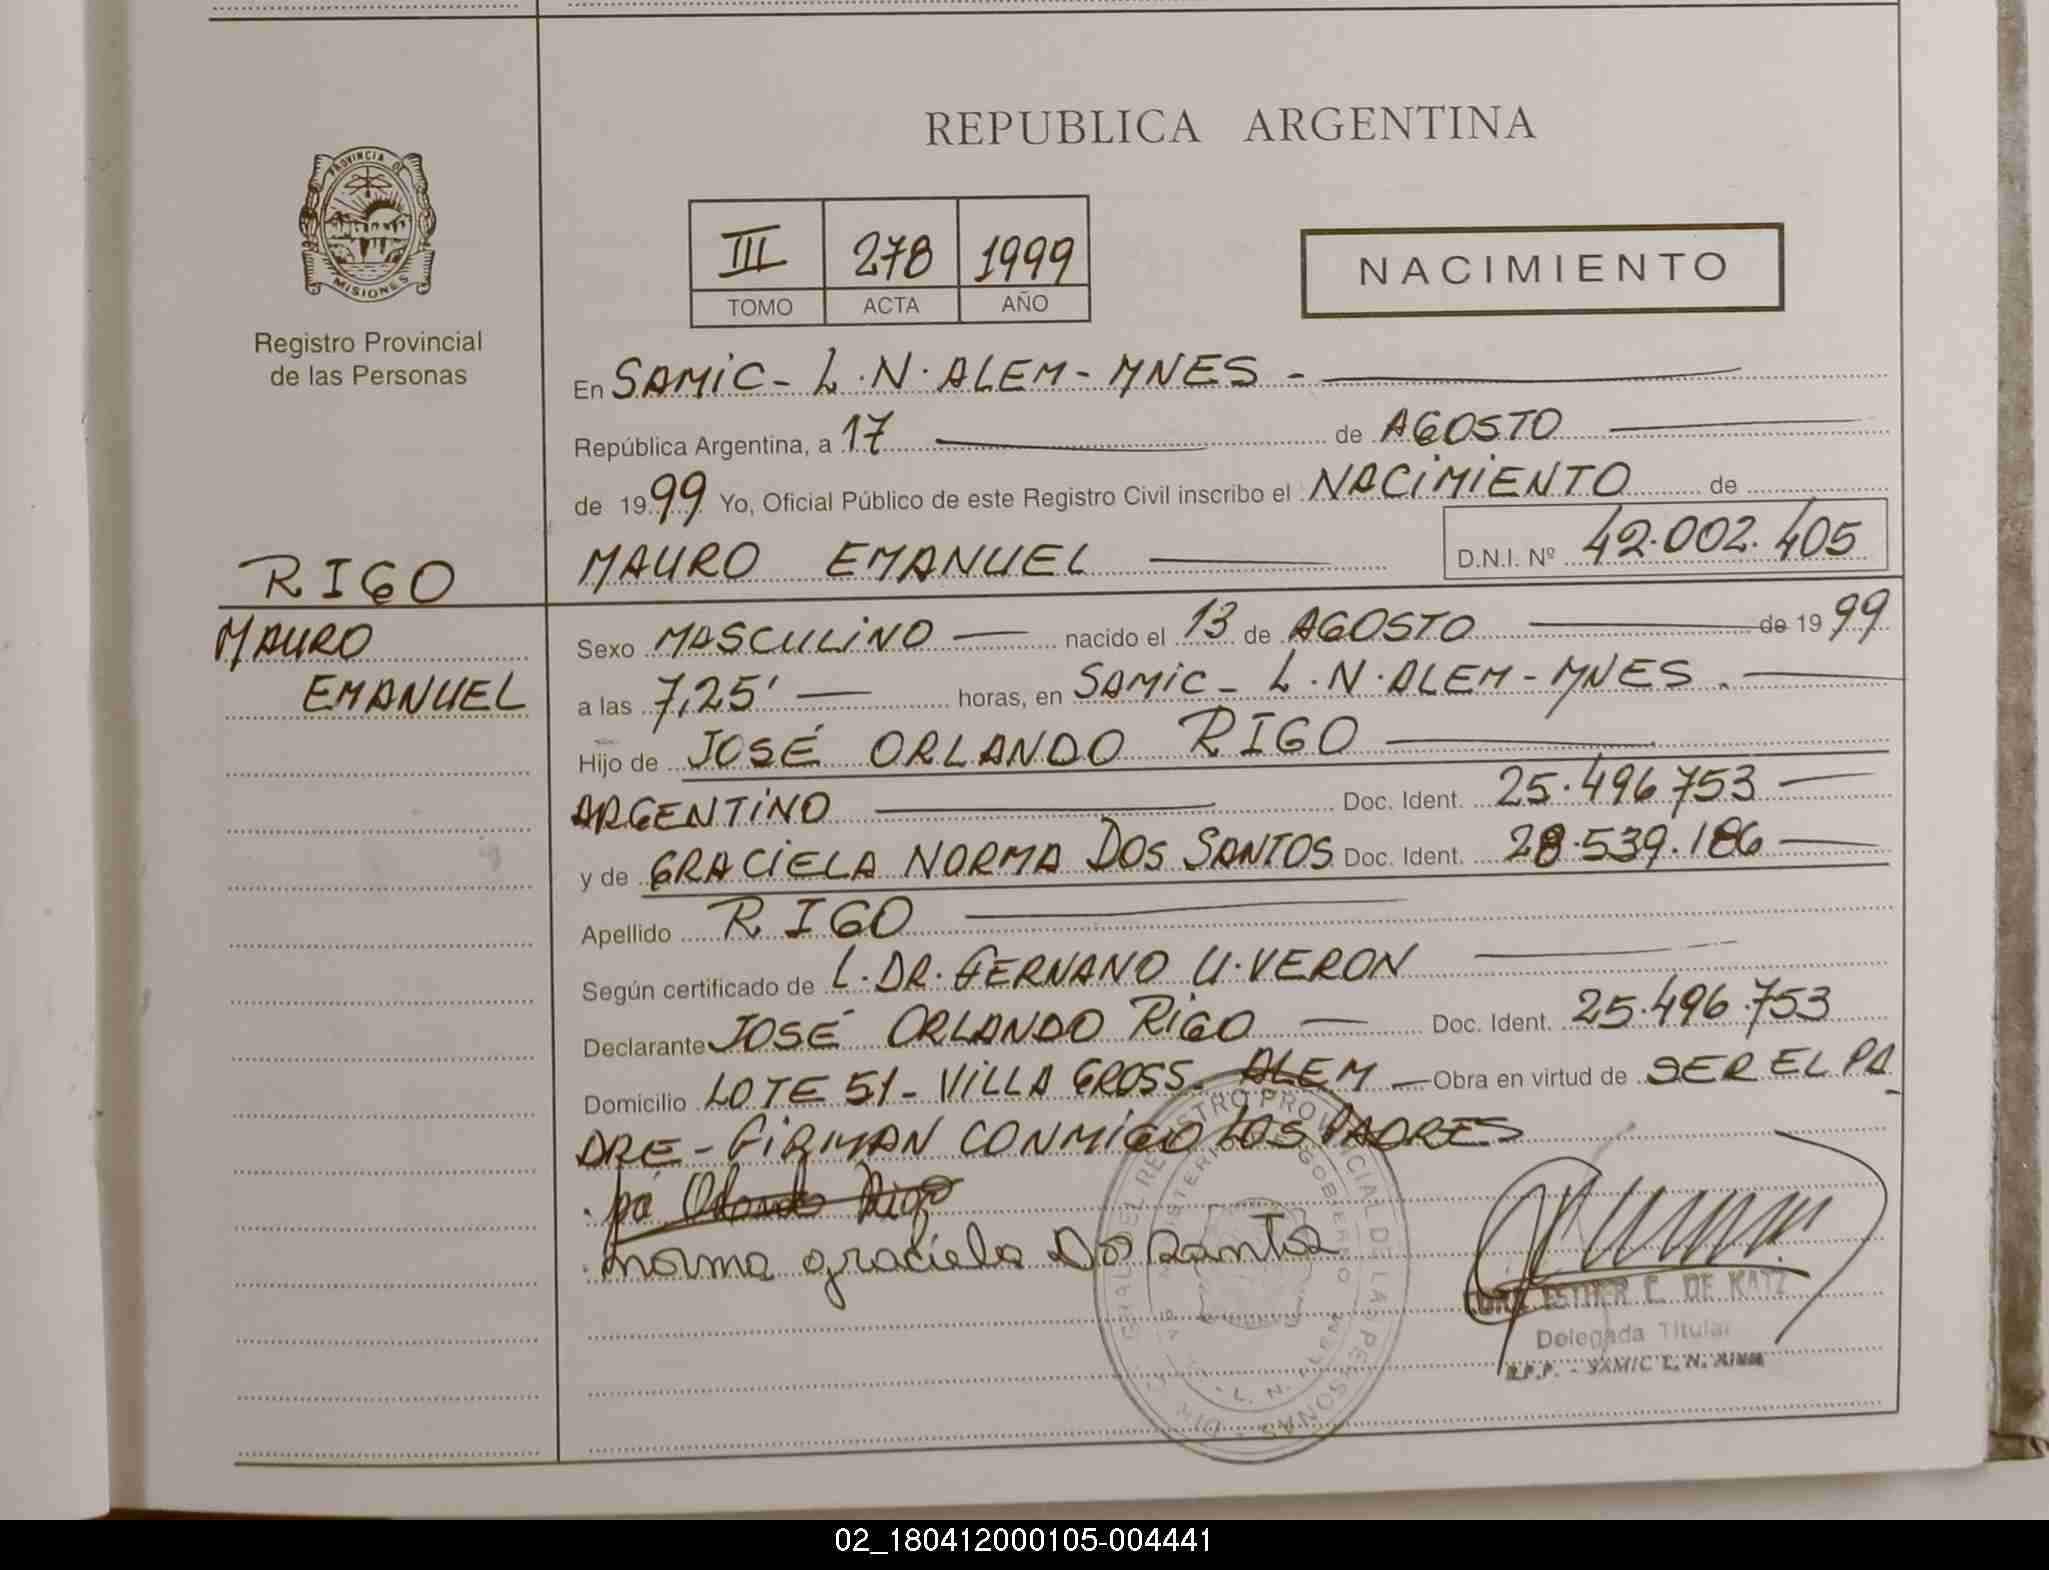 REPUBLICA ARGENTINA
PROVINCIA DE
MISIONES
Registro Provincial
de las Personas
III 278 1999
TOMO ACTA AÑO
NACIMIENTO
En SAMIC - L.N. ALEM - MNES -
República Argentina, a 17 de AGOSTO
de 1999 Yo, Oficial Público de este Registro Civil inscribo el NACIMIENTO de
RIGO
MAURO EMANUEL D.N.I. Nº 42.002.405
MAURO
EMANUEL
Sexo MASCULINO nacido el 13 de AGOSTO de 1999
a las 7,25' horas, en SAMIC - L.N. ALEM - MNES.
Hijo de JOSÉ ORLANDO RIGO
ARGENTINO Doc. Ident. 25.496.753
y de GRACIELA NORMA DOS SANTOS Doc. Ident. 28.539.186
Apellido RIGO
Según certificado de L. DR. FERNANO U. VERON
Declarante JOSÉ ORLANDO RIGO Doc. Ident. 25.496.753
Domicilio LOTE 51 - VILLA GROSS. ALEM - Obra en virtud de SER EL PA
DRE - FIRMAN CONMIGO LOS PADRES
Orlando Rigo
norma graciela Do santos
ESTHER C. DE KATZ
Delegada Titular
R.P.P. - SAMIC L. N. Alem
REGISTRO PROVINCIAL DE LAS PERSONAS
02_180412000105-004441